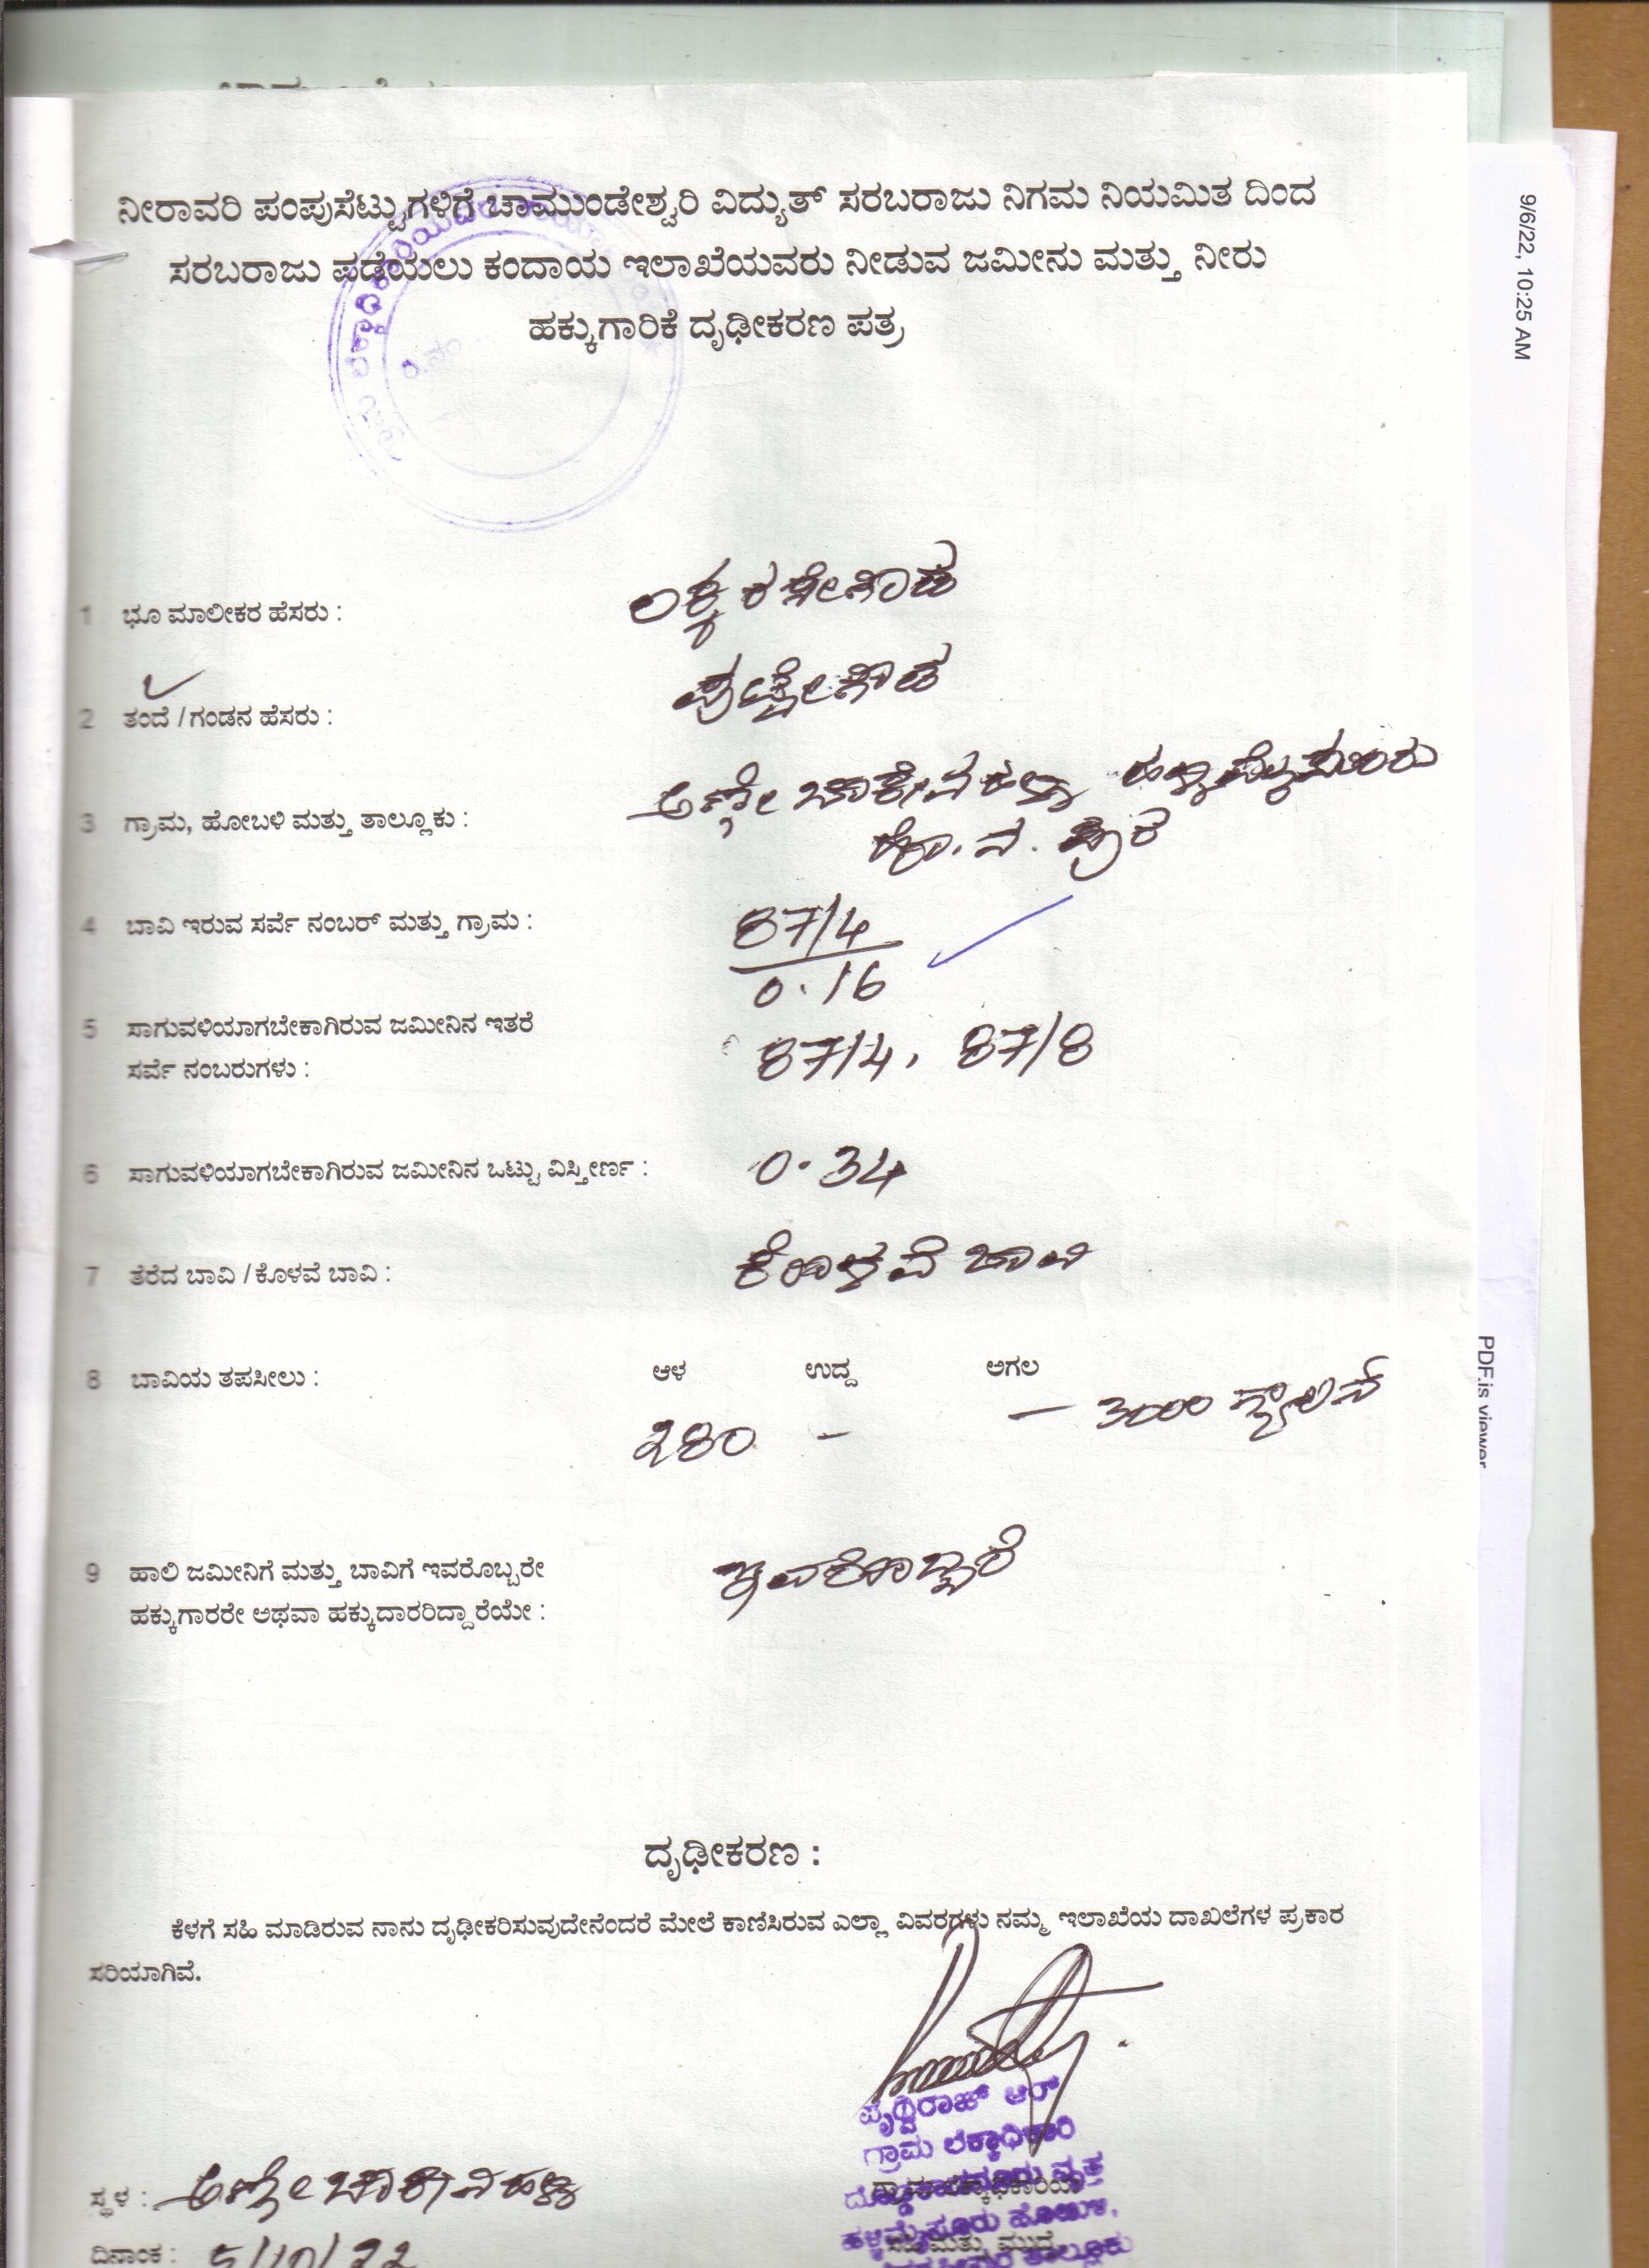 9/6/22, 10:25 AM
ನೀರಾವರಿ ಪಂಪುಸೆಟ್ಟುಗಳಿಗೆ ಚಾಮುಂಡೇಶ್ವರಿ ವಿದ್ಯುತ್ ಸರಬರಾಜು ನಿಗಮ ನಿಯಮಿತ ದಿಂದ
ಸರಬರಾಜು ಪಡೆಯಲು ಕಂದಾಯ ಇಲಾಖೆಯವರು ನೀಡುವ ಜಮೀನು ಮತ್ತು ನೀರು
ಹಕ್ಕುಗಾರಿಕೆ ದೃಢೀಕರಣ ಪತ್ರ
1 ಭೂ ಮಾಲೀಕರ ಹೆಸರು :
2 ತಂದೆ / ಗಂಡನ ಹೆಸರು : ಪುಟ್ಟೇಗೌಡ
3 ಗ್ರಾಮ, ಹೋಬಳಿ ಮತ್ತು ತಾಲ್ಲೂಕು :
4 ಬಾವಿ ಇರುವ ಸರ್ವೆ ನಂಬರ್ ಮತ್ತು ಗ್ರಾಮ : 87/4
0.16
5 ಸಾಗುವಳಿಯಾಗಬೇಕಾಗಿರುವ ಜಮೀನಿನ ಇತರೆ
ಸರ್ವೆ ನಂಬರುಗಳು : 87/4, 87/8
6 ಸಾಗುವಳಿಯಾಗಬೇಕಾಗಿರುವ ಜಮೀನಿನ ಒಟ್ಟು ವಿಸ್ತೀರ್ಣ : 0.34
7 ತೆರೆದ ಬಾವಿ / ಕೊಳವೆ ಬಾವಿ : ಕೊಳವೆ ಬಾವಿ
8 ಬಾವಿಯ ತಪಸೀಲು : ಆಳ ಉದ್ದ ಅಗಲ
280 - - 3000 ಗ್ಯಾಲನ್
PDF.js viewer
9 ಹಾಲಿ ಜಮೀನಿಗೆ ಮತ್ತು ಬಾವಿಗೆ ಇವರೊಬ್ಬರೇ
ಹಕ್ಕುಗಾರರೇ ಅಥವಾ ಹಕ್ಕುದಾರರಿದ್ದಾರೆಯೇ : ಇವರೊಬ್ಬರೆ
ದೃಢೀಕರಣ :
ಕೆಳಗೆ ಸಹಿ ಮಾಡಿರುವ ನಾನು ದೃಢೀಕರಿಸುವುದೇನೆಂದರೆ ಮೇಲೆ ಕಾಣಿಸಿರುವ ಎಲ್ಲಾ ವಿವರಗಳು ನಮ್ಮ ಇಲಾಖೆಯ ದಾಖಲೆಗಳ ಪ್ರಕಾರ
ಸರಿಯಾಗಿವೆ.
ಪೃಥ್ವಿರಾಜ್ ಆರ್
ಗ್ರಾಮ ಲೆಕ್ಕಾಧಿಕಾರಿ
ಸ್ಥಳ :
ಹಳ್ಳಿಮೈಸೂರು ಹೋಬಳಿ,
ದಿನಾಂಕ : 5/10/22
ತಾಲ್ಲೂಕು